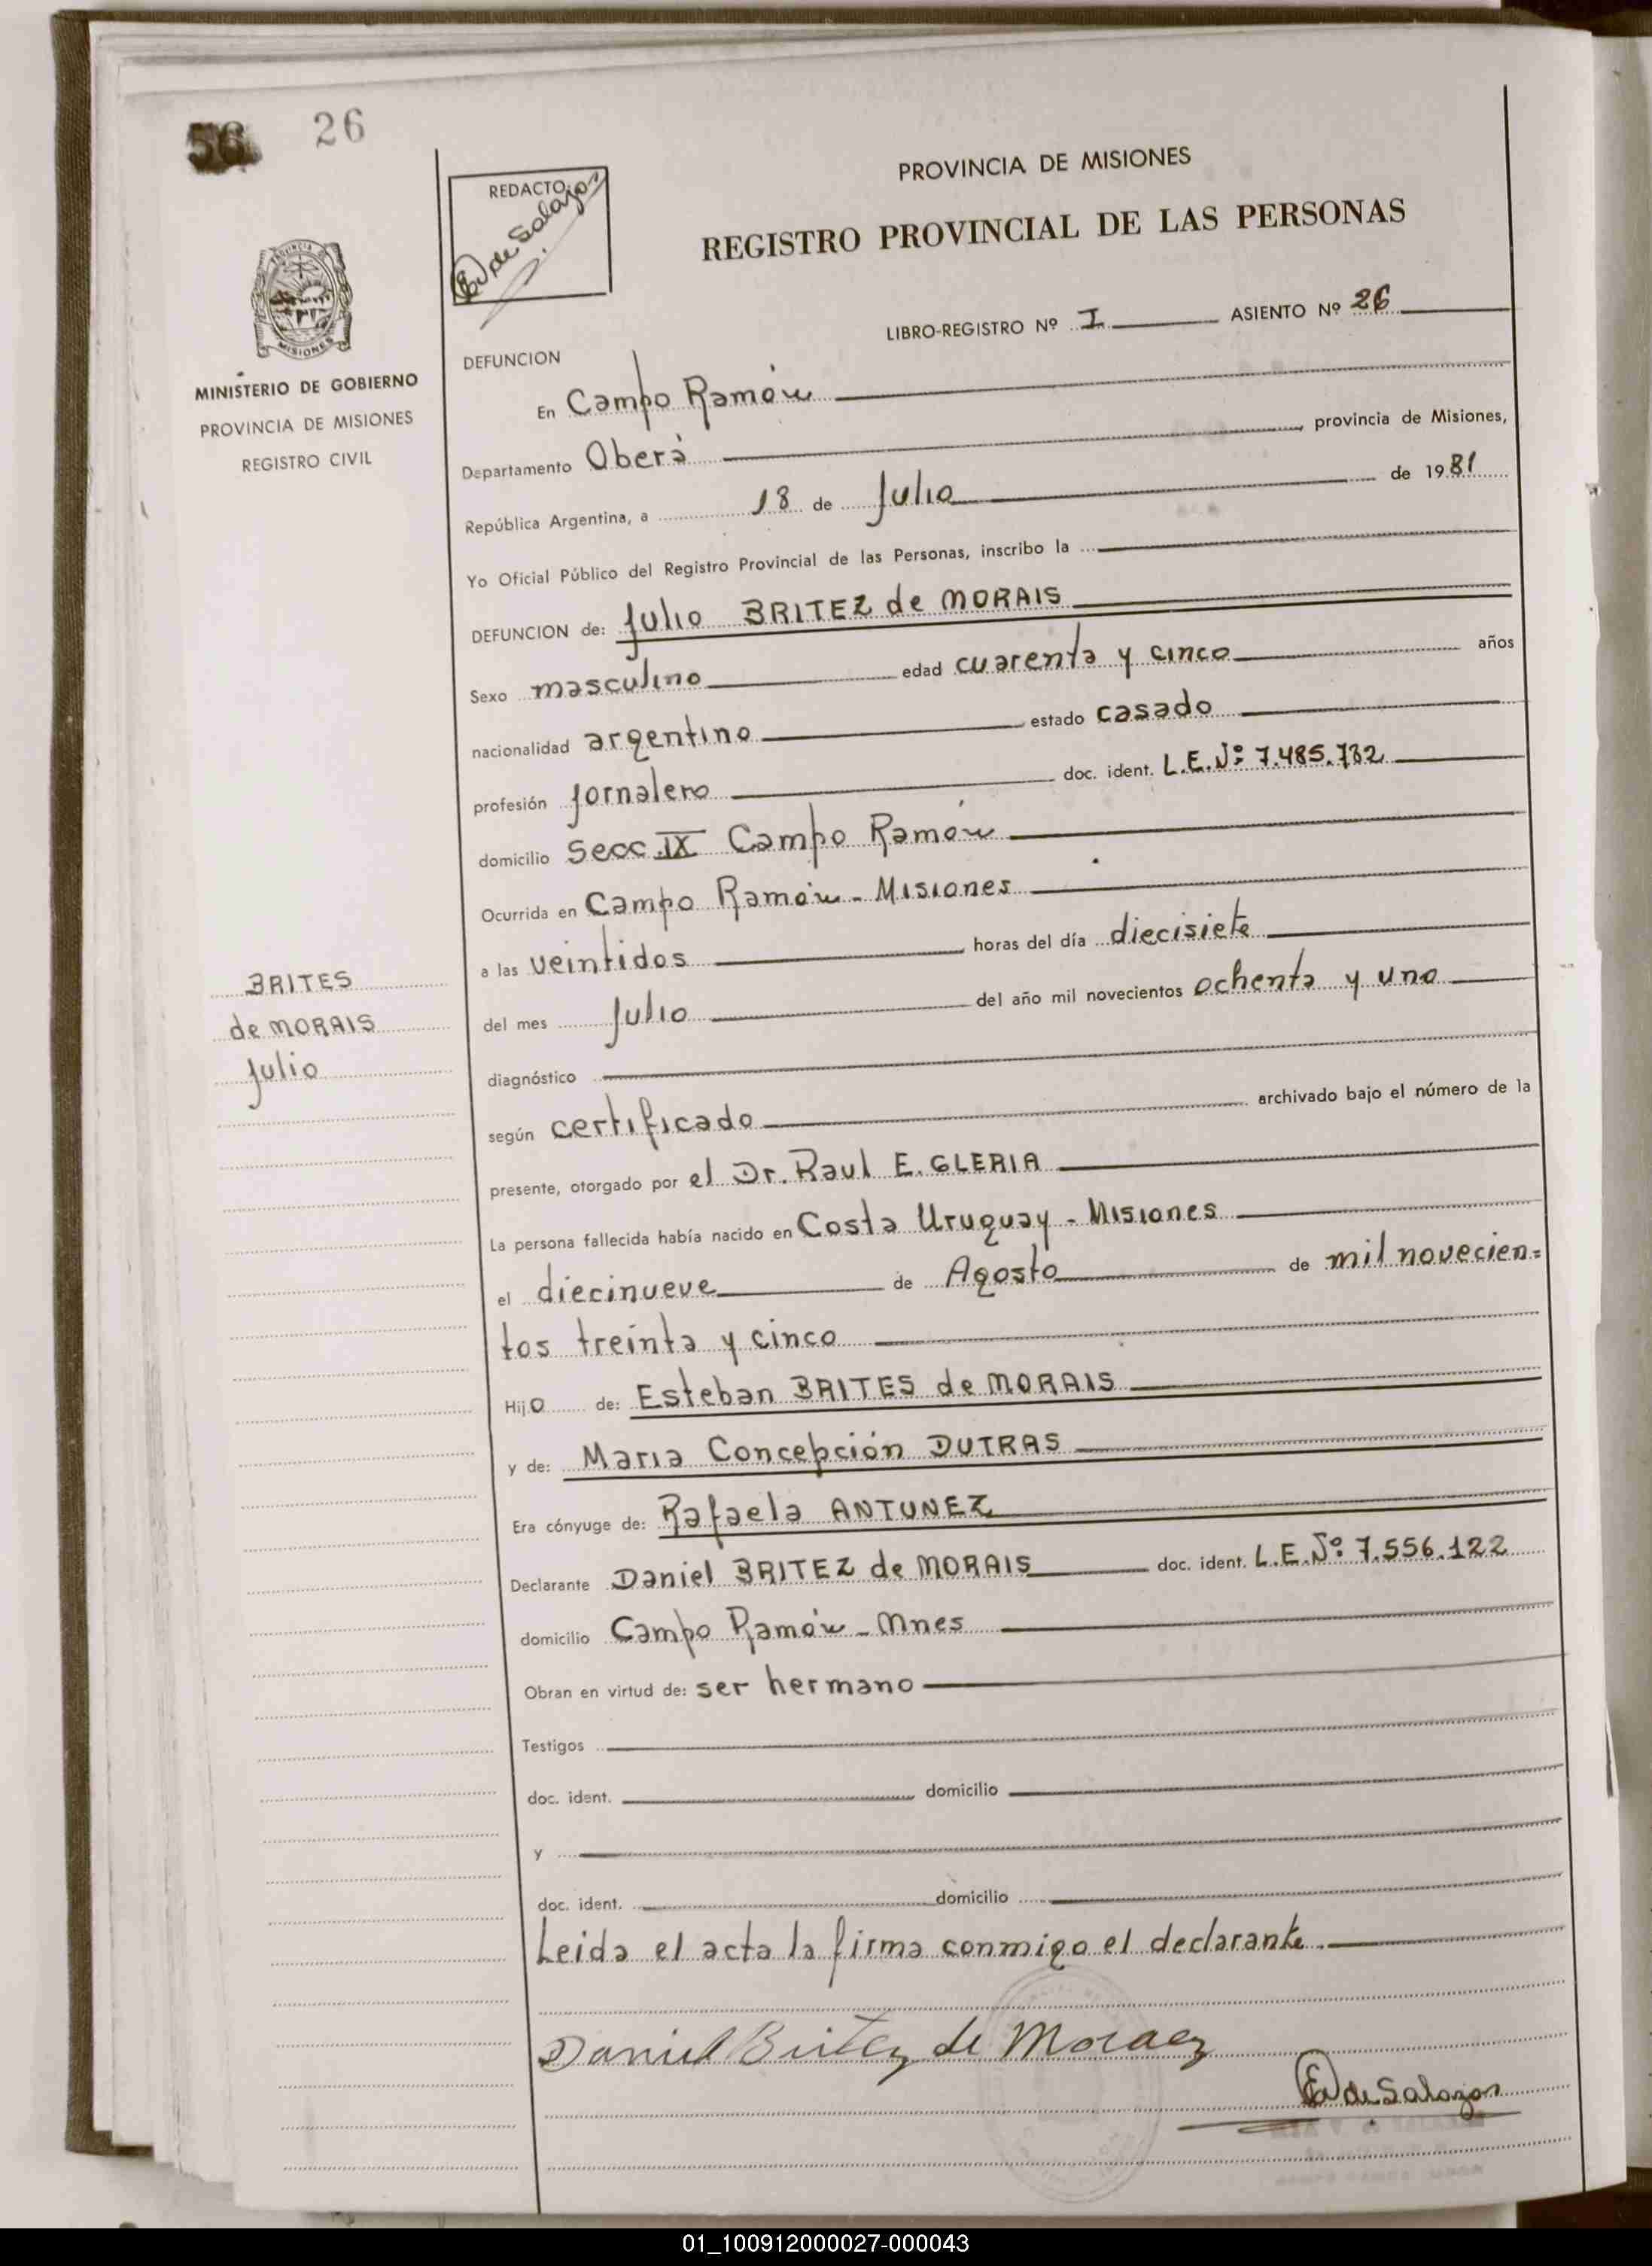 56 26
REDACTO
E de Salazar
PROVINCIA DE MISIONES
REGISTRO PROVINCIAL DE LAS PERSONAS
LIBRO-REGISTRO Nº I ASIENTO Nº 26
PROVINCIA
MISIONES
MINISTERIO DE GOBIERNO
PROVINCIA DE MISIONES
REGISTRO CIVIL
DEFUNCION
En Campo Ramón
Departamento Oberá, provincia de Misiones,
República Argentina, a 18 de Julio de 1981
Yo Oficial Público del Registro Provincial de las Personas, inscribo la
DEFUNCION de: Julio BRITEZ de MORAIS
Sexo masculino edad cuarenta y cinco años
nacionalidad argentino estado casado
profesión Jornalero doc. ident. L.E.Nº 7.485.732
domicilio Secc. IX Campo Ramón
Ocurrida en Campo Ramón - Misiones
a las veintidos horas del día diecisiete
del mes Julio del año mil novecientos ochenta y uno
BRITES
de MORAIS
Julio
diagnóstico
según certificado archivado bajo el número de la
presente, otorgado por el Dr. Raul E. GLERIA
La persona fallecida había nacido en Costa Uruguay - Misiones
el diecinueve de Agosto de mil novecien=
tos treinta y cinco
Hijo de: Esteban BRITES de MORAIS
y de: Maria Concepción DUTRAS
Era cónyuge de: Rafaela ANTUNEZ
Declarante Daniel BRITEZ de MORAIS doc. ident. L.E.Nº 7.556.122
domicilio Campo Ramón - Mnes
Obran en virtud de: ser hermano
Testigos
doc. ident. domicilio
y
doc. ident. domicilio
Leida el acta la firma conmigo el declarante.
Daniel Britez de Moraez
E de Salazar
01_100912000027-000043